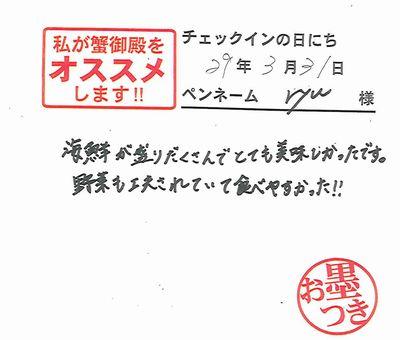 私が蟹御殿を
オススメ
します!!
チェックインの日にち
29年3月31日
ペンネーム ryu 様
海鮮が盛りだくさんでとても美味しかったです。
野菜も工夫されていて食べやすかった!!
お墨つき